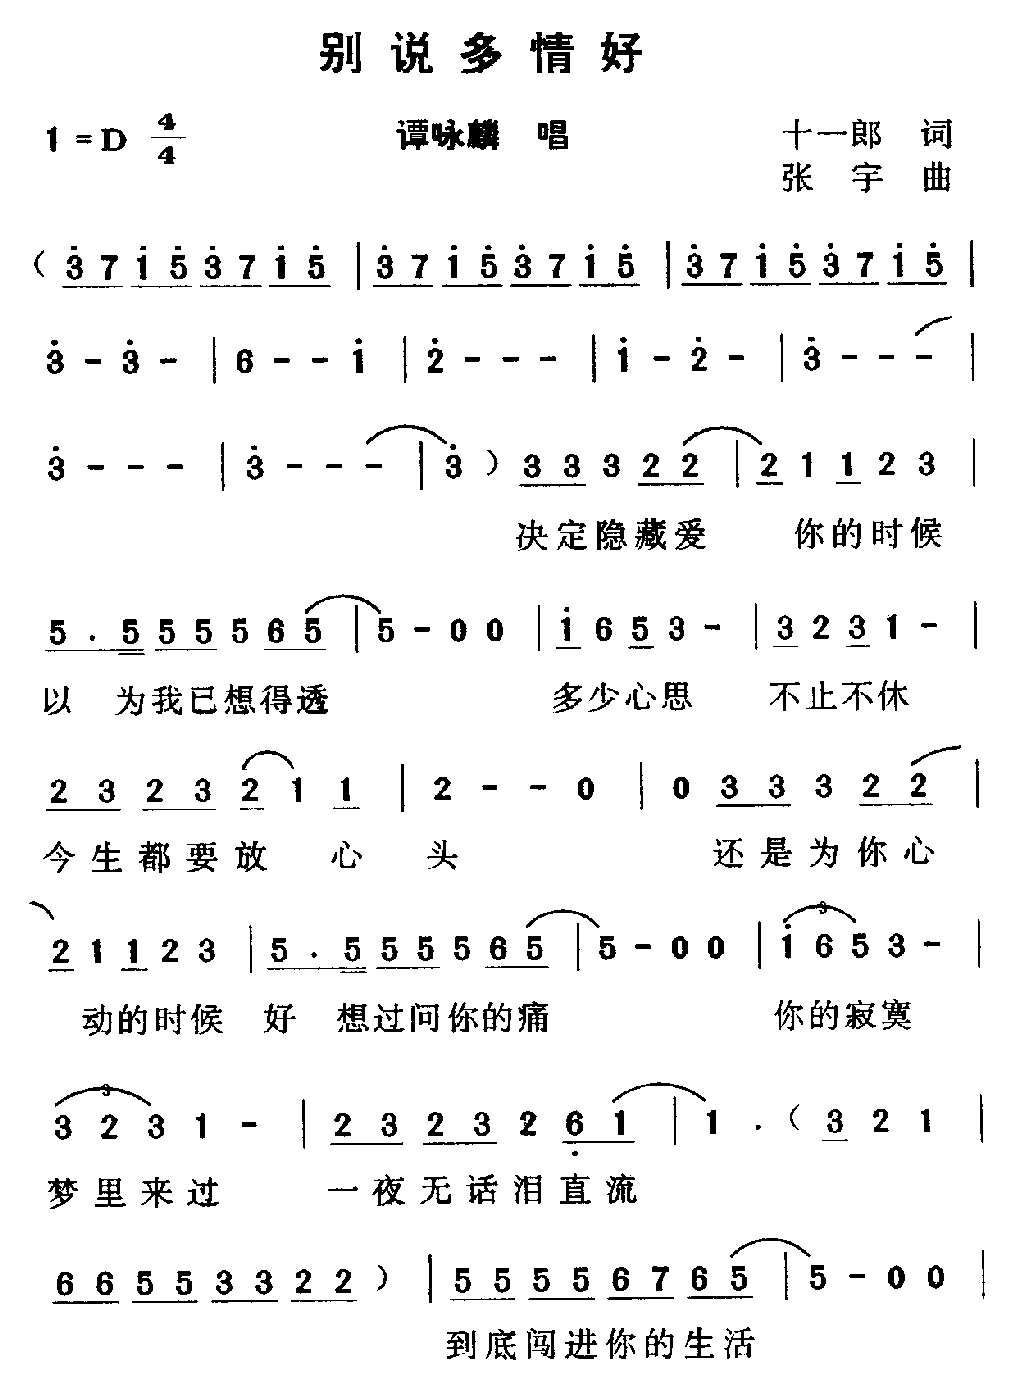 别说多情好
1=D 4/4 谭咏麟 唱 十一郎 词
张 宇 曲
( 3 7 1 5 3 7 1 5 | 3 7 1 5 3 7 1 5 | 3 7 1 5 3 7 1 5 |
3 - 3 - | 6 - - 1 | 2 - - - | 1 - 2 - | 3 - - - |
3 - - - | 3 - - - | 3 ) 3 3 3 2 2 | 2 1 1 2 3 |
决定隐藏爱 你的时候
5 . 5 5 5 5 6 5 | 5 - 0 0 | 1 6 5 3 - | 3 2 3 1 - |
以 为我已想得透 多少心思 不止不休
2 3 2 3 2 1 1 | 2 - - 0 | 0 3 3 3 2 2 |
今生都要放 心 头 还是为你心
2 1 1 2 3 | 5 . 5 5 5 5 6 5 | 5 - 0 0 | 3 1 6 5 3 - |
动的时候 好 想过问你的痛 你的寂寞
3 3 2 3 1 - | 2 3 2 3 2 6 1 | 1 . ( 3 2 1 |
梦里来过 一夜无话泪直流
6 6 5 5 3 3 2 2 ) | 5 5 5 5 6 7 6 5 | 5 - 0 0 |
到底闯进你的生活